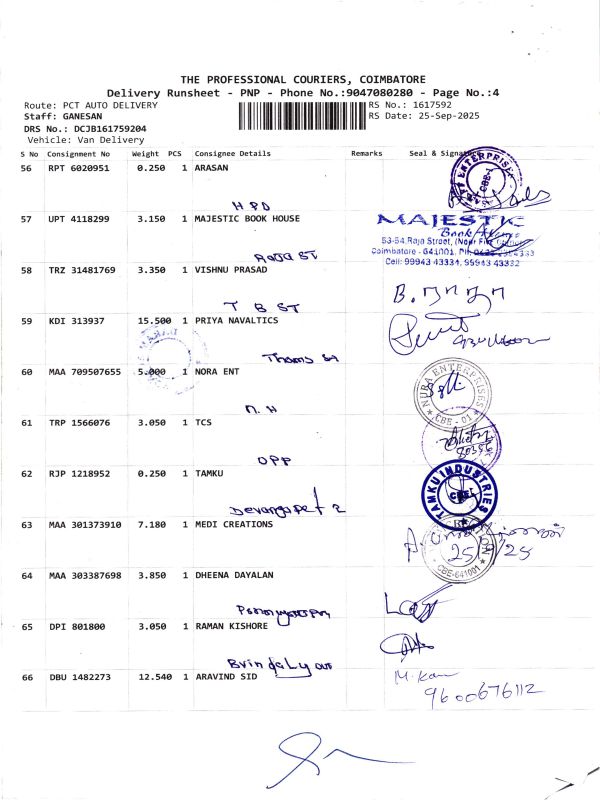 THE PROFESSIONAL COURIERS, COIMBATORE
Delivery Runsheet - PNP - Phone No.:9047080280 - Page No.:4
Route: PCT AUTO DELIVERY RS No.: 1617592
Staff: GANESAN RS Date: 25-Sep-2025
DRS No.: DCJB161759204
Vehicle: Van Delivery
S No Consignment No Weight PCS Consignee Details Remarks Seal & Signature
56 RPT 6020951 0.250 1 ARASAN
HPO
57 UPT 4118299 3.150 1 MAJESTIC BOOK HOUSE
MAJESTIC
Book
53-54, Raja Street,
Coimbatore - 641001,
Cell: 99943 43334, 99943 43332
58 TRZ 31481769 3.350 1 VISHNU PRASAD
T B ST
59 KDI 313937 15.500 1 PRIYA NAVALTICS
Thoms
60 MAA 709507655 5.000 1 NORA ENT
NURA ENTERPRISES
CBE - 01
N. H
61 TRP 1566076 3.050 1 TCS
OPP
62 RJP 1218952 0.250 1 TAMKU
TAMKU INDUSTRIES
CBE
63 MAA 301373910 7.180 1 MEDI CREATIONS
CBE-641001
64 MAA 303387698 3.850 1 DHEENA DAYALAN
65 DPI 801800 3.050 1 RAMAN KISHORE
66 DBU 1482273 12.540 1 ARAVIND SID
9600676112